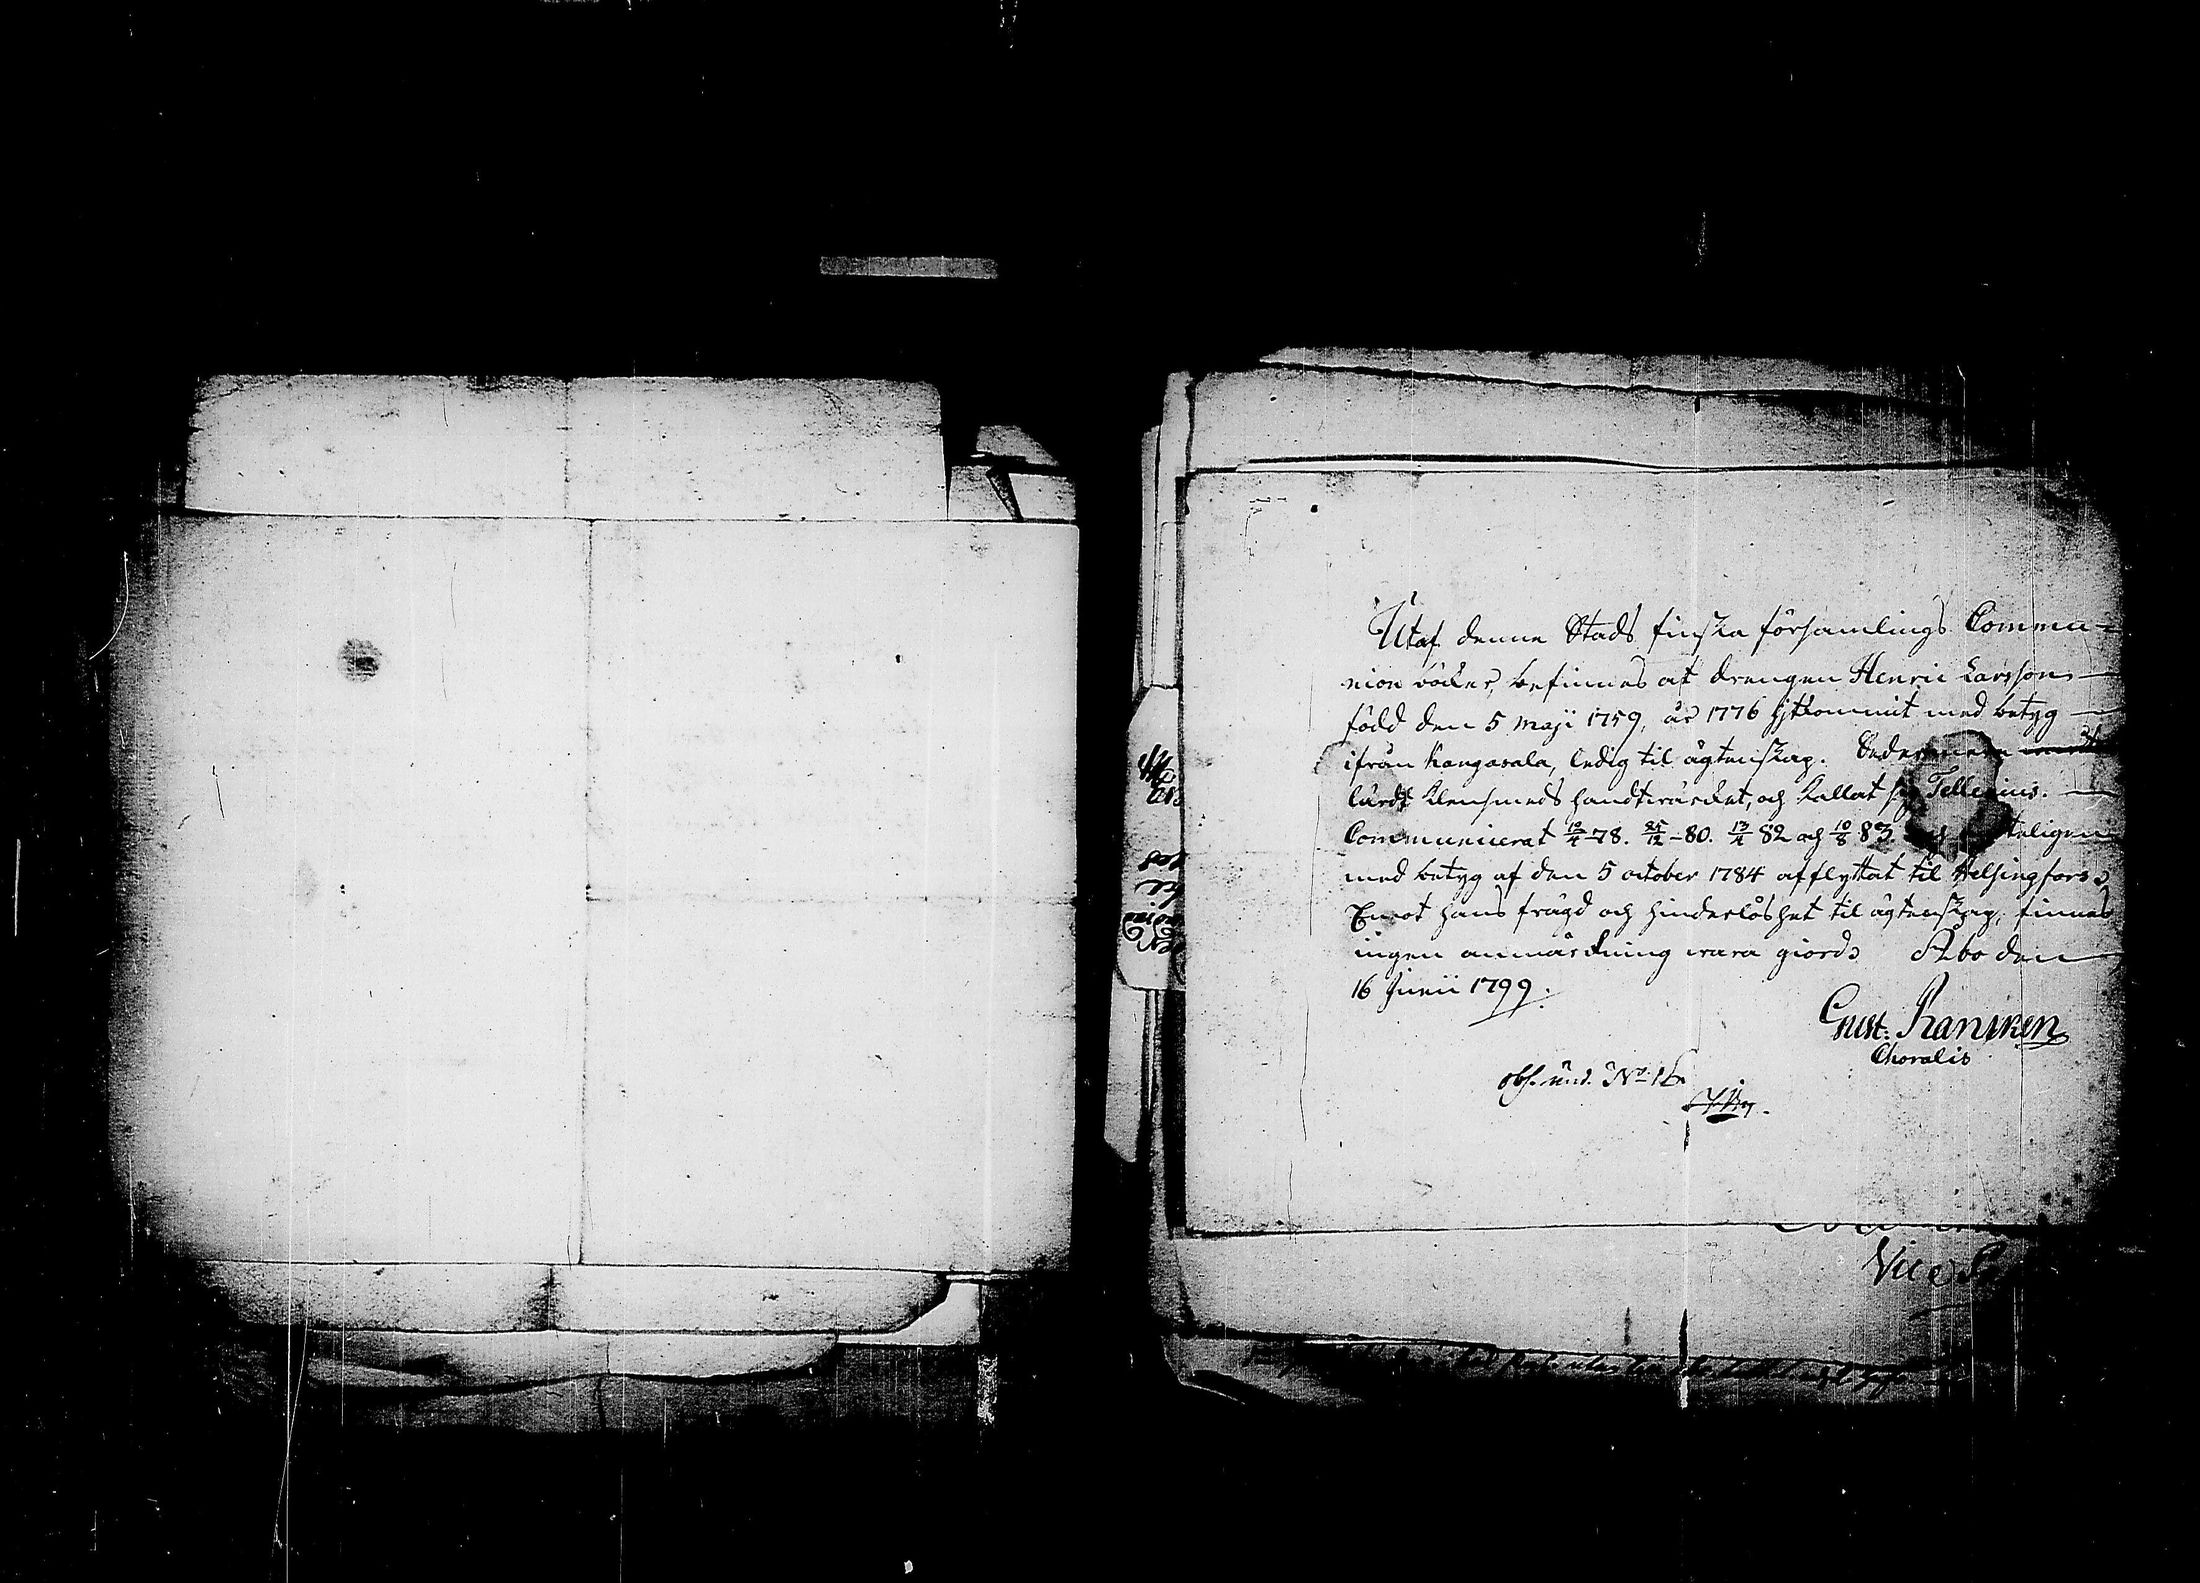 Utaf denne Stads finska församlings Commu-
nion böcker, befinnes at drengen Henric Larsson
född den 5 Maji 1759, år 1776 hjtkommit med betyg
ifrån Kangasala, ledig til ägtenskap.
lärdt Klensmeds handtwärcket, och kallat sig Tellenius.
Communicerat 12/4 78. 25/12 - 80. 13/4 82 och 10/8 83.
med betyg af den 5 october 1784 afflyttat til Helsingfors.
Emot hans frägd och hinderlöshet til ägtenskap, finnes
ingen anmärckning wara giord. Åbo den
16 Junii 1799.
Gust. Rancken
Choralis
obs. und. No 12
Vice